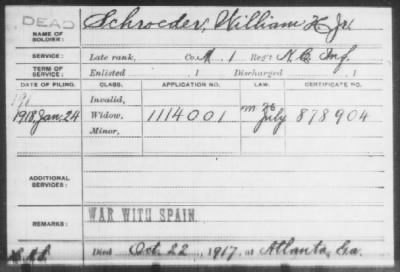 DEAD
NAME OF SOLDIER: Schroeder, William H. Jr.
SERVICE: Late rank, Co. M. 1 Reg't N.C. Inf.
TERM OF SERVICE: Enlisted , 1 Discharged , 1
DATE OF FILING. CLASS. APPLICATION NO. LAW. CERTIFICATE NO.
191 Invalid,
1918, Jan. 24 Widow, 1114001 July 878904
Minor,
ADDITIONAL SERVICES:
REMARKS: WAR WITH SPAIN.
Died Oct. 22, 1917, at Atlanta, Ga.